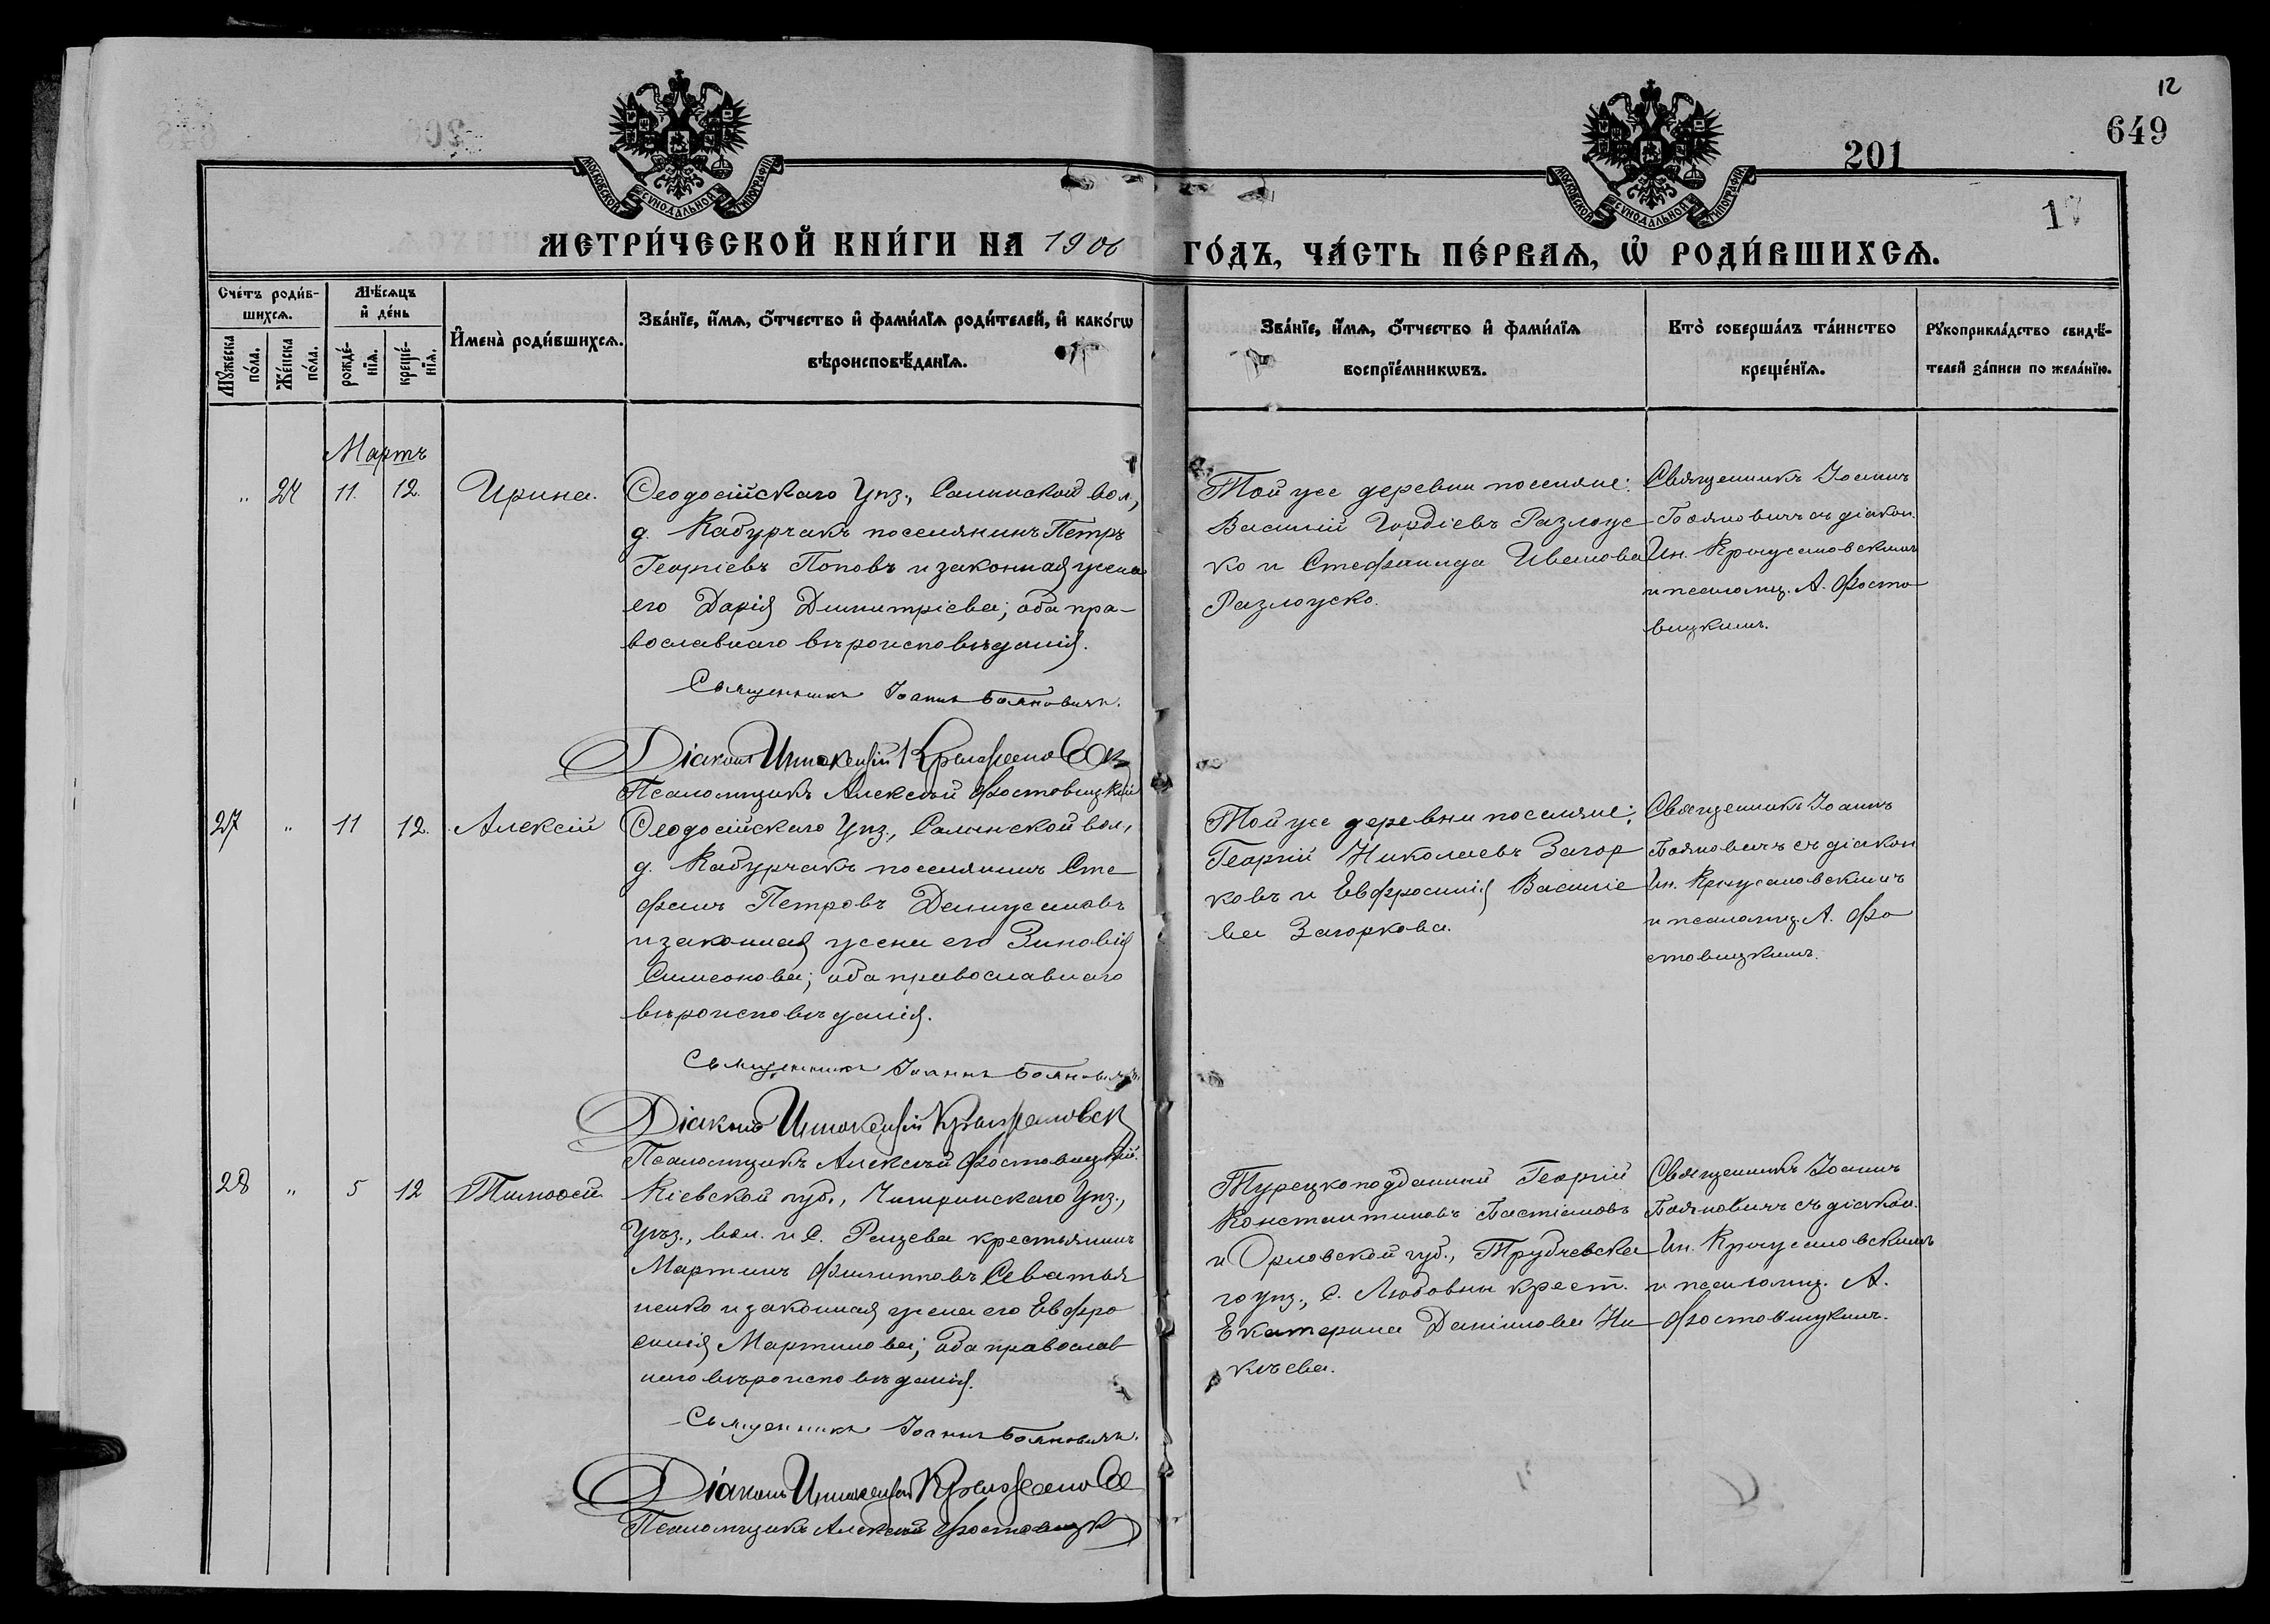 12
649
201
17
МОСКОВСКОЙ СѴНОДАЛЬНОЙ ТИПОГРАФІИ
МОСКОВСКОЙ СѴНОДАЛЬНОЙ ТИПОГРАФІИ
МЕТРИ́ЧЕСКОЙ КНИ́ГИ НА 1906 ГО́ДЪ, ЧА́СТЬ ПЕ́РВАѦ, Ѡ҆ РОДИ́ВШИХСѦ.
Сче́тъ роди́в-
шихсѧ.
Мѣ́сѧцъ
и҆ де́нь
Мꙋ́жеска
по́ла.
Же́нска
по́ла.
рожде́-
нїѧ.
креще́-
нїѧ.
И҆мена̀ роди́вшихсѧ.
Зва́нїе, и҆́мѧ, ѻ҆́тчество и҆ фами́лїѧ роди́телей, и҆ како́гѡ
вѣроисповѣ́данїѧ.
Зва́нїе, и҆́мѧ, ѻ҆́тчество и҆ фами́лїѧ
воспрїе́мникѡвъ.
Кто̀ соверша́лъ та́инство
креще́нїѧ.
Рꙋкоприкла́дство свидѣ́-
телей за́писи по жела́нїю.
Мартъ
" 24 11. 12. Ирина.
Ѳеодосійскаго Уѣз., Салынской вол.,
д. Кабурчакъ поселянинъ Петръ
Георгіевъ Поповъ и законная жена
его Дарія Димитріева; оба пра-
вославнаго вѣроисповѣданія.
Священникъ Іоаннъ Бояновичъ.
Діаконъ Иннокентій
Псаломщикъ Алексѣй Фостовицкій
Той же деревни поселяне:
Василій Гордіевъ Разлоус
ко и Стефанида Иванова
Разлоуско.
Священникъ Іоаннъ
Бояновичъ съ діакон.
Ин. Крыжановскимъ
и псаломщ. А. Фосто
вицкимъ.
27 " 11 12. Алексій
Ѳеодосійскаго Уѣз., Салынской вол.,
д. Кабурчакъ поселянинъ Сте
фанъ Петровъ Демиженовъ
и законная жена его Зиновія
Симеонова; оба православнаго
вѣроисповѣданія.
Священникъ Іоаннъ Бояновичъ.
Діаконъ Иннокентій Крыжановск
Псаломщикъ Алексѣй Фостовицкій.
Той же деревни поселяне:
Георгій Николаевъ Загор
ковъ и Евфросинія Василіе
ва Загоркова.
Священникъ Іоаннъ
Бояновичъ съ діакон
Ин. Крыжановскимъ
и псаломщ. А. Фо
стовицкимъ.
28 " 5 12 Тимоѳей
Кіевской губ., Чигиринскаго Уѣз.,
Уѣз., вол. и с. крестьянинъ
Мартинъ Филипповъ Севатья
ненко и законная жена его Евфро
синія Мартинова; оба православ
наго вѣроисповѣданія.
Священникъ Іоаннъ Бояновичъ.
Діаконъ Иннокентій
Псаломщикъ Алексѣй Фостовицк
Турецкоподданный Георгій
Константиновъ Бастіановъ
и Орловской губ., Трубчевска
го уѣз., с. Любовны крест.
Екатерина Даніилова Ни
кѣева.
Священникъ Іоаннъ
Бояновичъ съ діакон.
Ин. Крыжановскимъ
и псаломщ. А.
Фостовицкимъ.